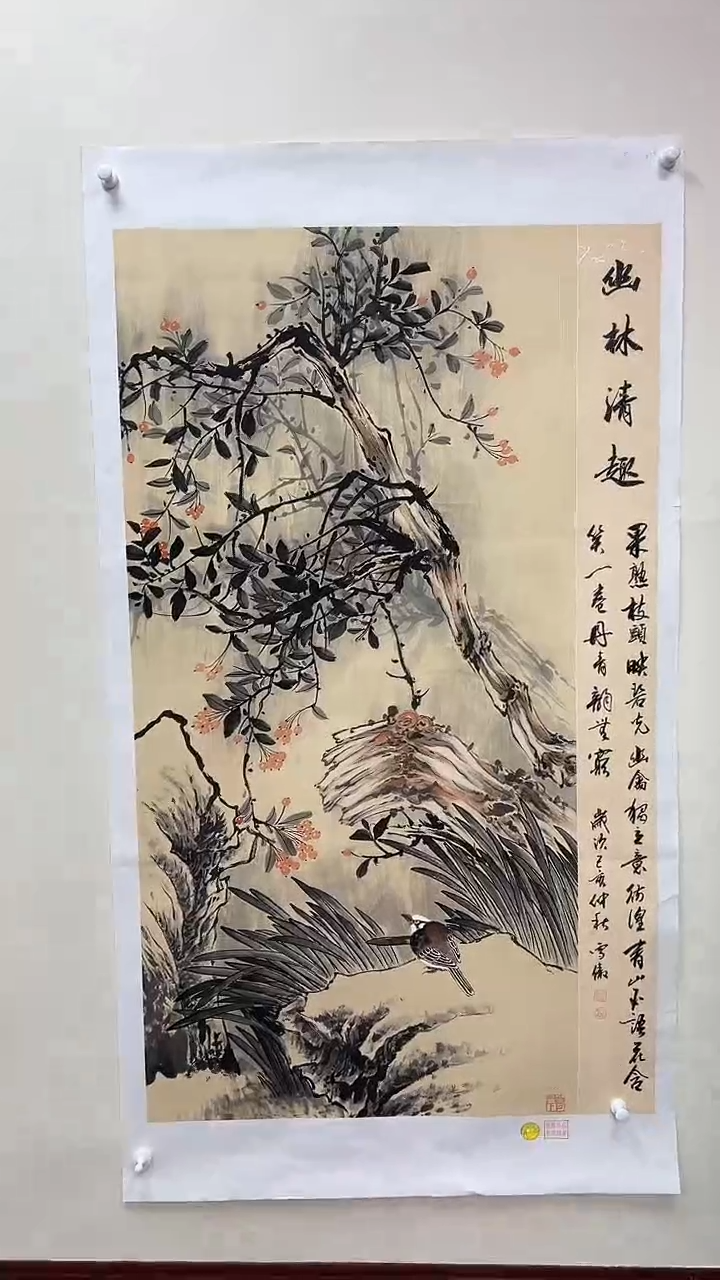 幽林清趣
果熟枝頭映碧光幽禽獨立意徬徨青山不語花含
笑一卷丹青韻無窮 歲次己亥仲秋雪傲